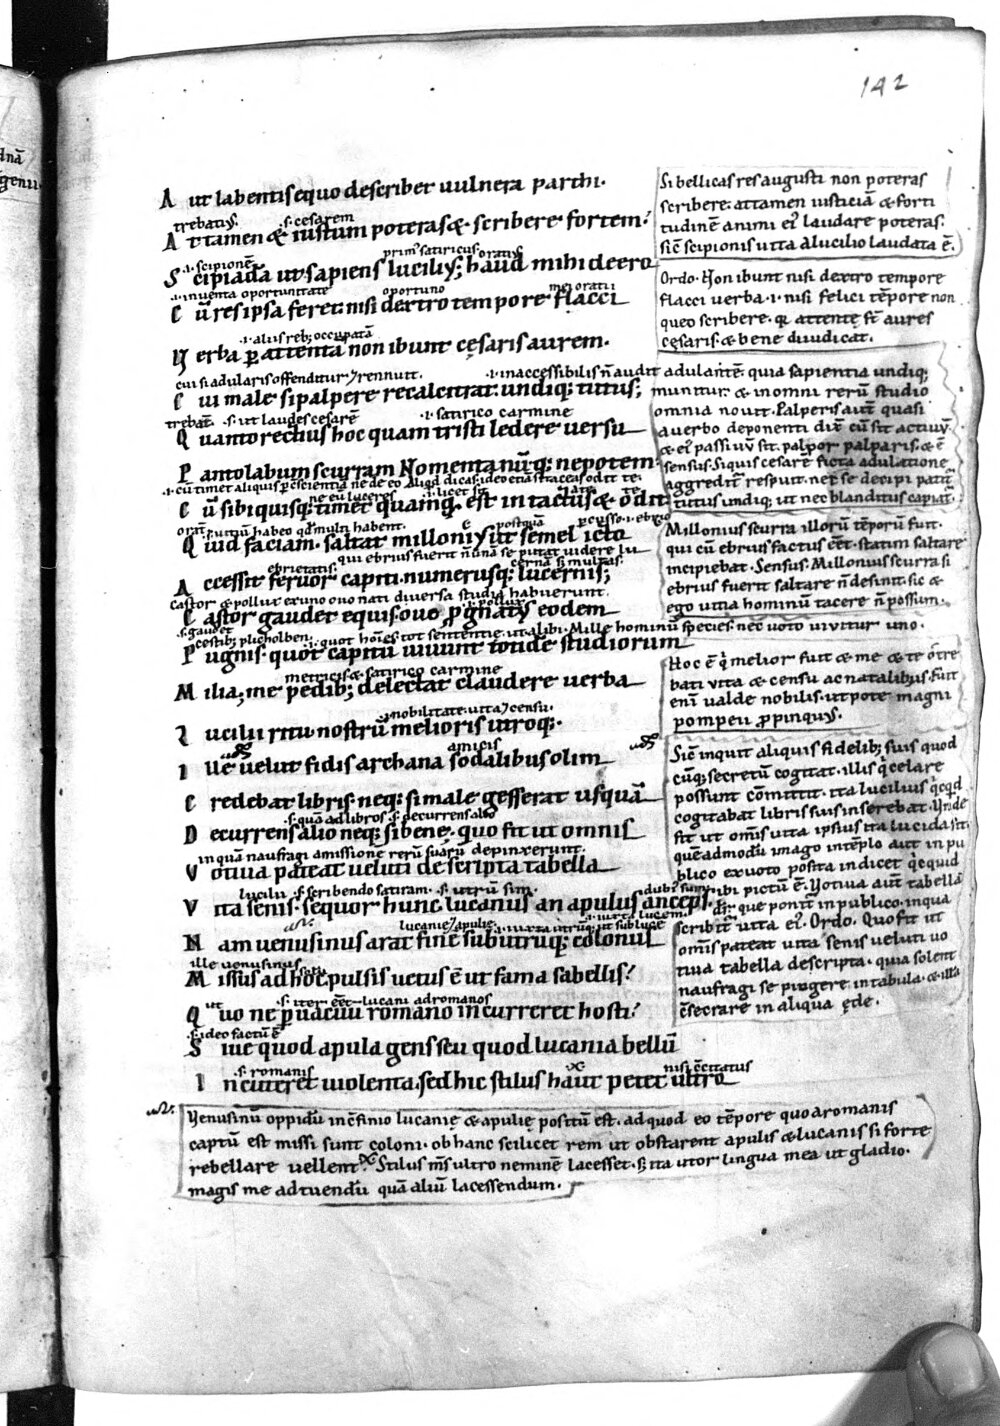 142
A ut labentis equo describet uulnera parthi.
trebatiꝰ. .s. cesarem
A ttamen & iustum poteras & scribere fortem?
.i. scipionē primꝰ satiricus oratiꝰ
S cipiadā ut sapiens luciliꝰ; haud mihi deero
.i. inuenta oportunitate oportuno mei oratii
C ū res ipsa feret. nisi dextro tempore flacci
.i. aliis reb; occupatā
V erba ꝑ attentā non ibunt cęsaris aurem.
cui si adularis offenditur ⁊ rennuit. .i. inaccessibilis
C ui male si palpere recalcitrat undiq; tutus;
trebatꝰ .s. ut laudes cesarē .i. satirico carmine
Q uanto rectius hoc quam tristi ledere uersu
P antolabum scurram Nomentanūq; nepotem.
C ū sibi quisq; timet quamq̄ est intactus & odit
Q uid faciam. saltat milloniꝰ ut semel icto
ebrietatis. qui ebrius fuerit
A ccessit feruor capiti. numerusq; lucernis;
castor & pollux ex uno ouo nati diuersa studia habuerunt.
C astor gaudet equis. ouo ꝓgnatꝰ eodem
.s. gaudet
P ugnis. quot capitū uiuunt totidē studiorum
metricis & satirico carmine
M ilia; me pedib; delectat claudere uerba
nobilitate uita ⁊ censu.
L ucilii ritu nostrū melioris utroq;.
amicis
I lle uelut fidis archana sodalibus olim
C redebat libris. neq; si male gesserat usquā
.s. quā ad libros .s. decurrens alio
D ecurrens alio neq; si bene; quo fit ut omnis
in quā naufragi amissionē rerū suarū depinxerunt.
V otiua pateat ueluti descripta tabella
lucilii .s. scribendo satiram. .s. utrū sim.
V ita senis. sequor hunc. lucanus an apulus anceps.
lucanie ⁊ apulie
N am uenusinus arat finē sub utrūq; colonus
ille uenusinus
M issus ad hoc pulsis uetus ē ut fama sabellis?
ut
Q uo ne ꝑ uacuū romano incurreret hosti?
.s. ideo factū ē
S iue quod apula gens seu quod lucania bellū
.s. romanis nisi ēcitatus
I ncuteret uiolenta. sed hic stilus haut petet ultro
Si bellicas res augusti non poteras
scribere. attamen iusticiā & forti
tudinē animi eiꝰ laudare poteras.
sic scipionis uita a lucilio laudata ē.
Ordo. Non ibunt nisi dextro tempore
flacci uerba .i. nisi felici tēpore non
queo scribere. attente
cęsaris. & bene diiudicat.
ñ audit adulantē. quia sapientia undiq;
munitur. & in omni rerū studio
omnia nouit. Palperis autē quasi
a uerbo deponenti
palpor palparis. & ē
sensus. Si quis cesarē ficta adulatione
aggreditˉ respuit. nec se decipi patitˉ
tutus undiq; ut nec blanditus capiat.
Millonius scurra illorū tēporū fuit.
qui cū ebrius factus eēt. statim saltare
incipiebat. Sensus. Millonius scurra si
ebrius fuerit saltare ñ desinit. sic &
ego uitia hominū tacere ñ possum.
quot hoīes tot sententie. ut alibi. Mille hominū species. nec uoto uiuitur uno.
Hoc ē q̇ melior fuit & me & te o tre
bati uita & censu ac natalibus. fuit
enī ualde nobilis. utpote magni
pompeii ꝓpinquꝰ.
Sic inquit aliquis fidelib; suis quod
cūq; secretū cogitat. illis q̇ celare
possunt cōmittit. ita lucilius q̇cqd
cogitabat libris suis inserebat. Vnde
fit ut omīs uita ipsius ita lucida sit.
quēadmodū imago in tēplo aut in pu
blico ex uoto posita indicet q̇cquid
ibi pictū ē. Votiua autē tabella
que ponitˉ in publico. in qua
scribitˉ uita eiꝰ. Ordo. Quo fit ut
omīs pateat uita senis ueluti uo
tiua tabella descripta. quia solent
naufragi se pingere in tabula. & illā
cōsecrare in aliqua ęde.
Venusinū oppidū in cōfinio lucanię & apulię positū est. ad quod eo tēpore quo a romanis
captū est missi sunt coloni. ob hanc scilicet rem ut obstarent apulis & lucanis si forte
rebellare uellent. Stilus mˢ ultro neminē lacesset. s; ita utor lingua mea ut gladio.
magis me ad tuendū quā aliū lacessendum.